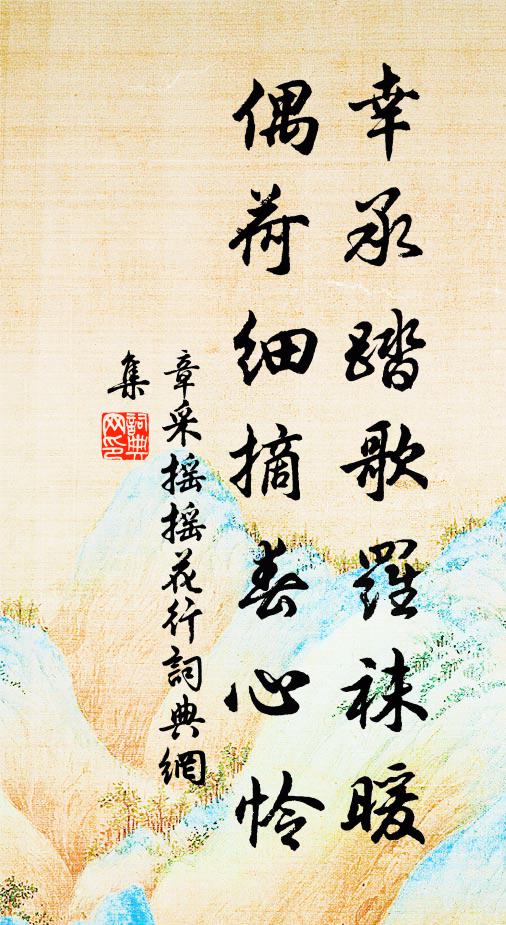 幸承踏歌羅袜暖
偶荷细摘春心怜
章采摇摇花行詞典網
集
詞典
网印